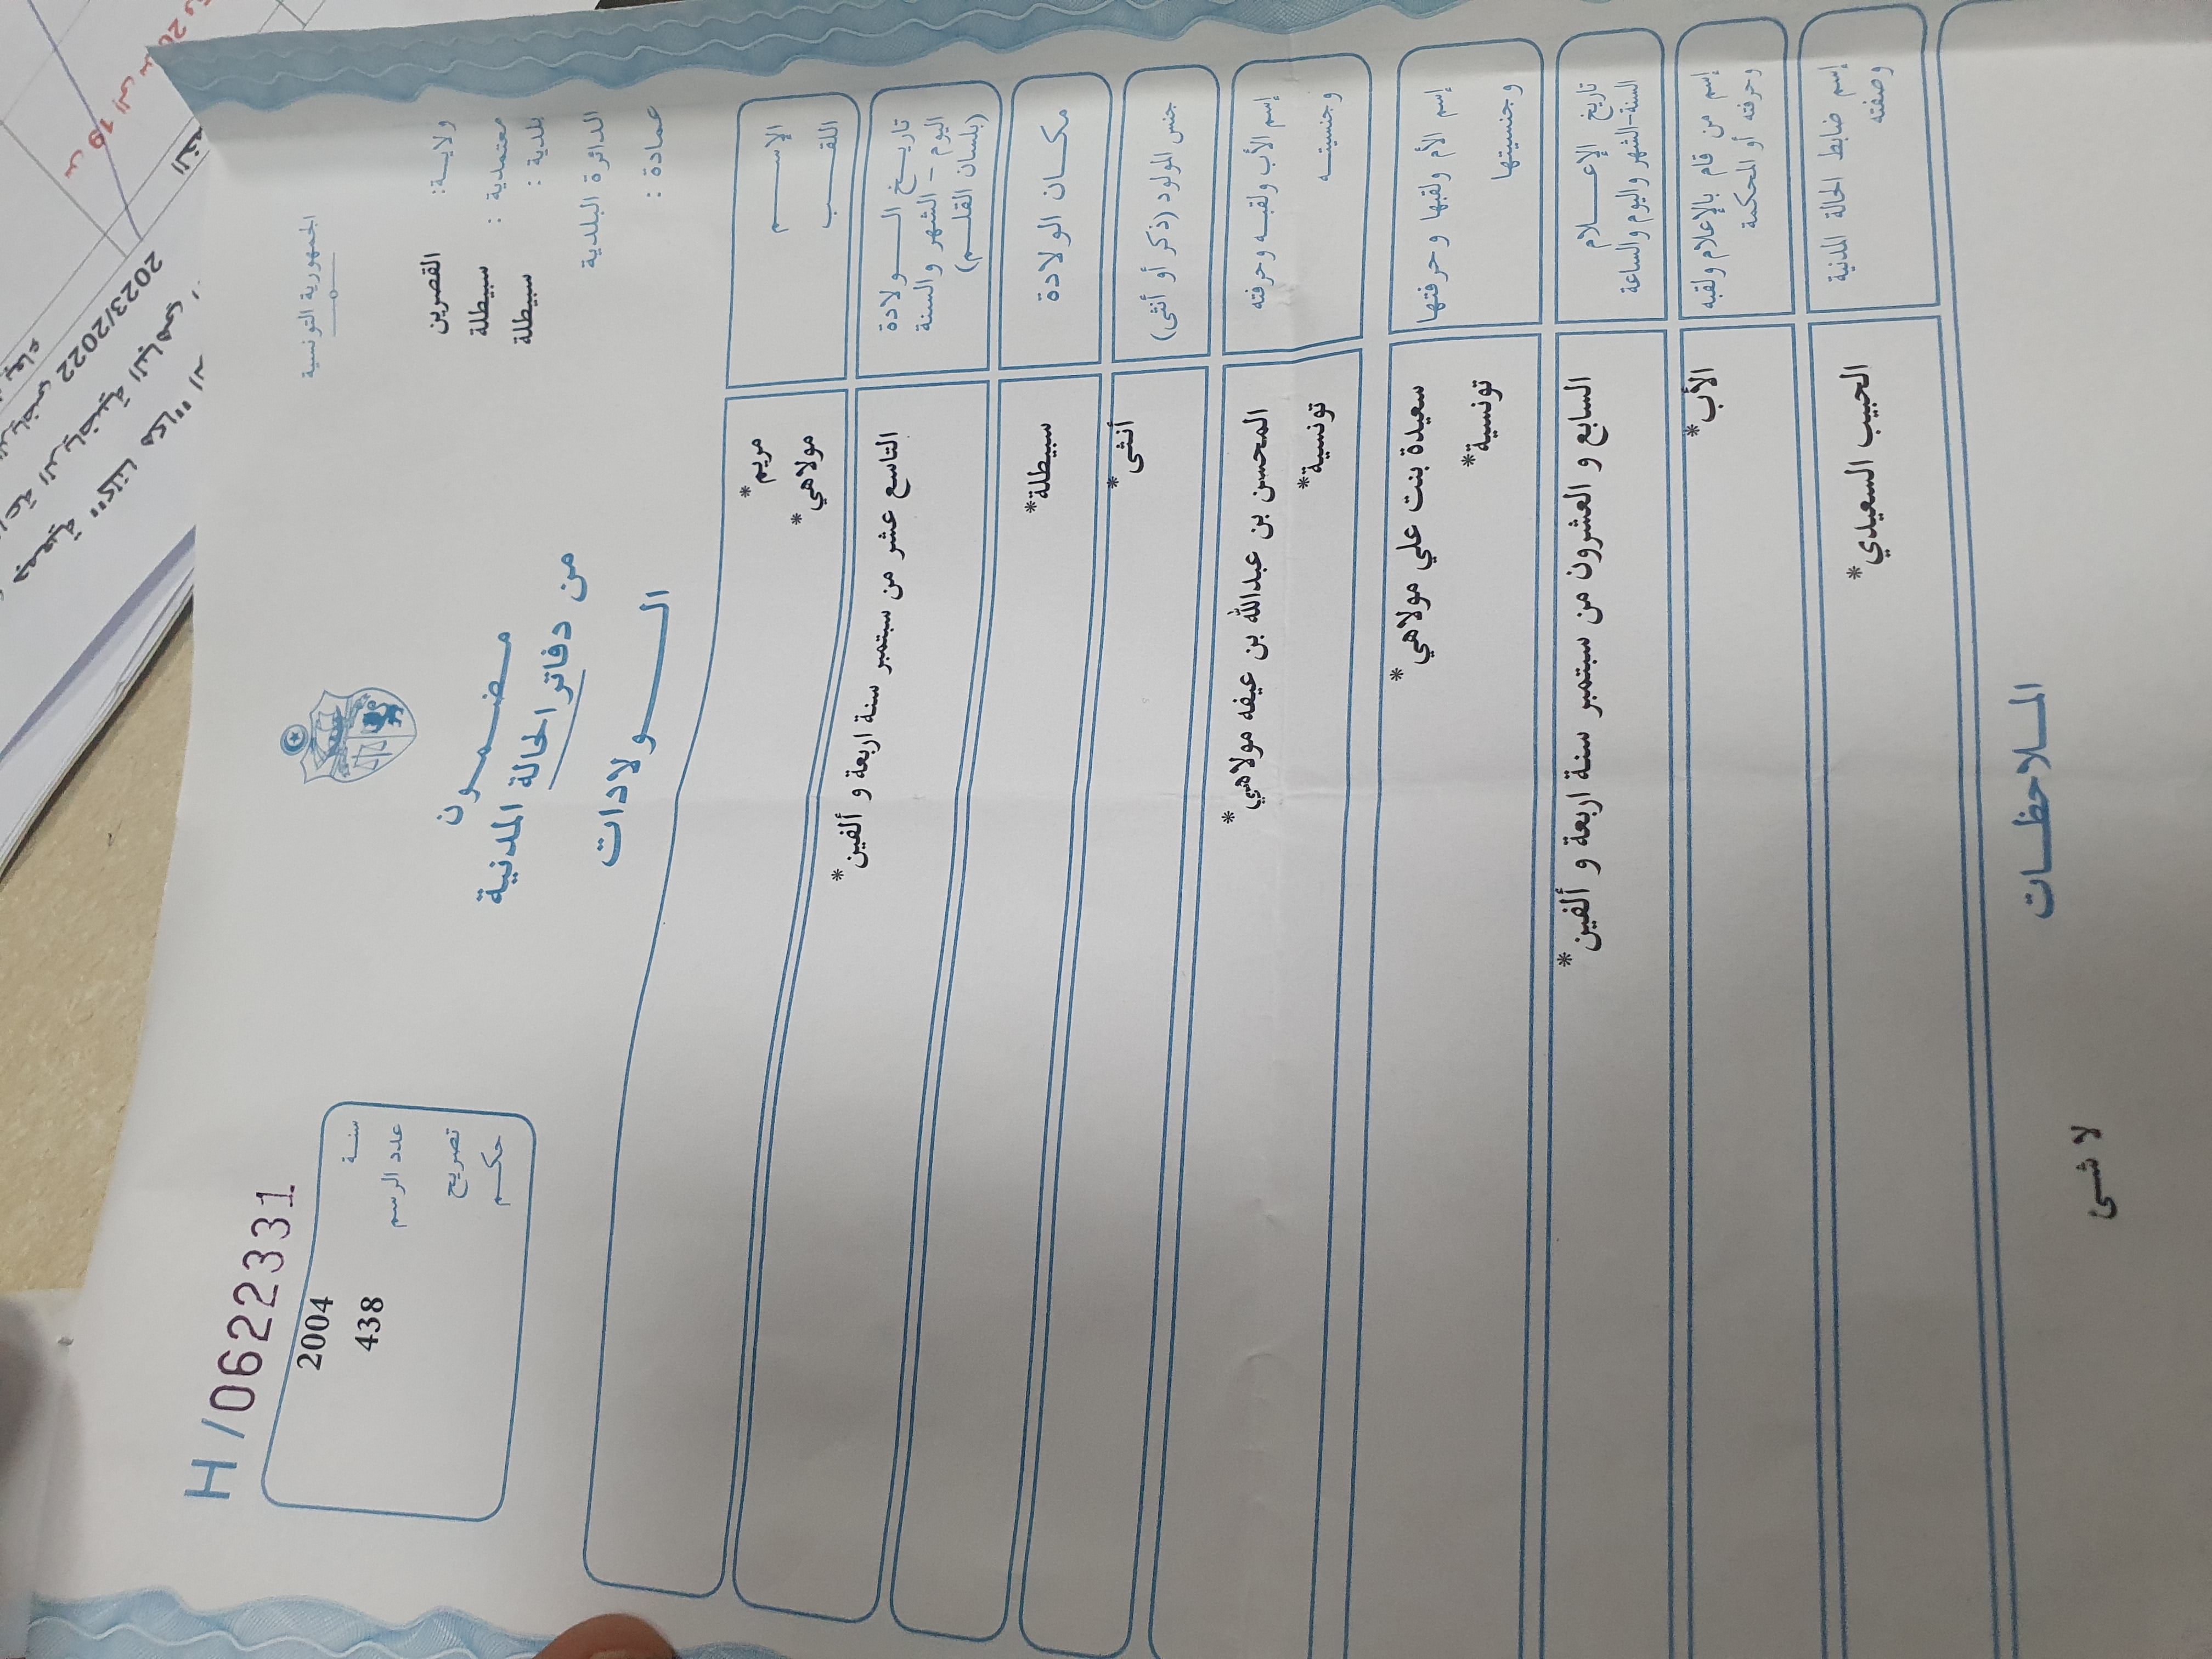 H/062231
الجمهورية التونسية
سنة 2004
عدد الرسم 438
تصريح
حكم
ولاية: القصرين
معتمدية : سبيطلة
بلدية : سبيطلة
الدائرة البلدية
عمادة :
مضمون
من دفاتر الحالة المدنية
الولادات
الإسم مريم*
اللقب مولاهي*
تاريخ الولادة
اليوم - الشهر والسنة
(بلسان القلم)
التاسع عشر من سبتمبر سنة اربعة و ألفين*
مكان الولادة سبيطلة*
جنس المولود (ذكر أو أنثى) أنثى*
إسم الأب ولقبه وحرفته المحسن بن عبدالله بن عيفه مولاهي*
وجنسيته تونسية*
إسم الأم ولقبها وحرفتها سعيدة بنت علي مولاهي*
وجنسيتها تونسية*
تاريخ الإعلام
السنة-الشهر واليوم والساعة
السابع و العشرون من سبتمبر سنة اربعة و ألفين*
إسم من قام بالإعلام ولقبه
وحرفته أو المحكمة
الأب*
إسم ضابط الحالة المدنية
وصفته
الحبيب السعيدي*
الملاحظات
لا شى
2023/2022